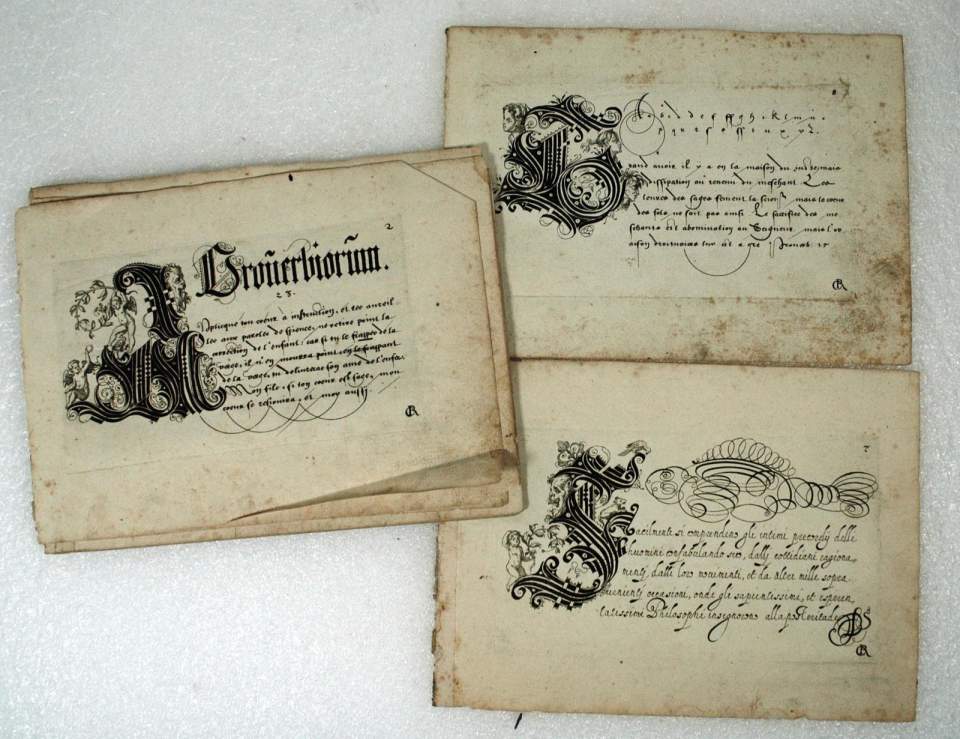 2
Proūerbiorūm.
23.
Aplicque ton coeur a instruction, et tes aureil
les aux paroles de science, ne retire point la
correction de l'enfant: car si tu le frappes de la
vage, il n'en mourra point, en le frappant
de la vage, tu delivreras son ame de l'enfer.
Mon filz, si ton coeur est sage, mon
coeur se resiouira, et moy aussi.
CR
a b c d d e f ff g h i k l m n
p q u r s o ss t u x y z
Grand avoir il y a en la maison du juste, mais
dissipation au revenu du meschant. Les
levres des sages sement la science, mais le coeur
des folz ne fait pas ainsi. Le sacrifice des me
schants est abomination au Seigneur, mais l'or
aison
est a gre Proverb. 15
CR
7
Facilmente si comprendeno gli intimi precordij delle
huomini confabulando seco, dalli cottidiani ragiona
menti, dalli loro nocimenti, et da altre mille sopra
venienti occasioni, onde gli sapientissimi, et esperien
tatissimi Philosophi insegnorono alla posteritade
CR